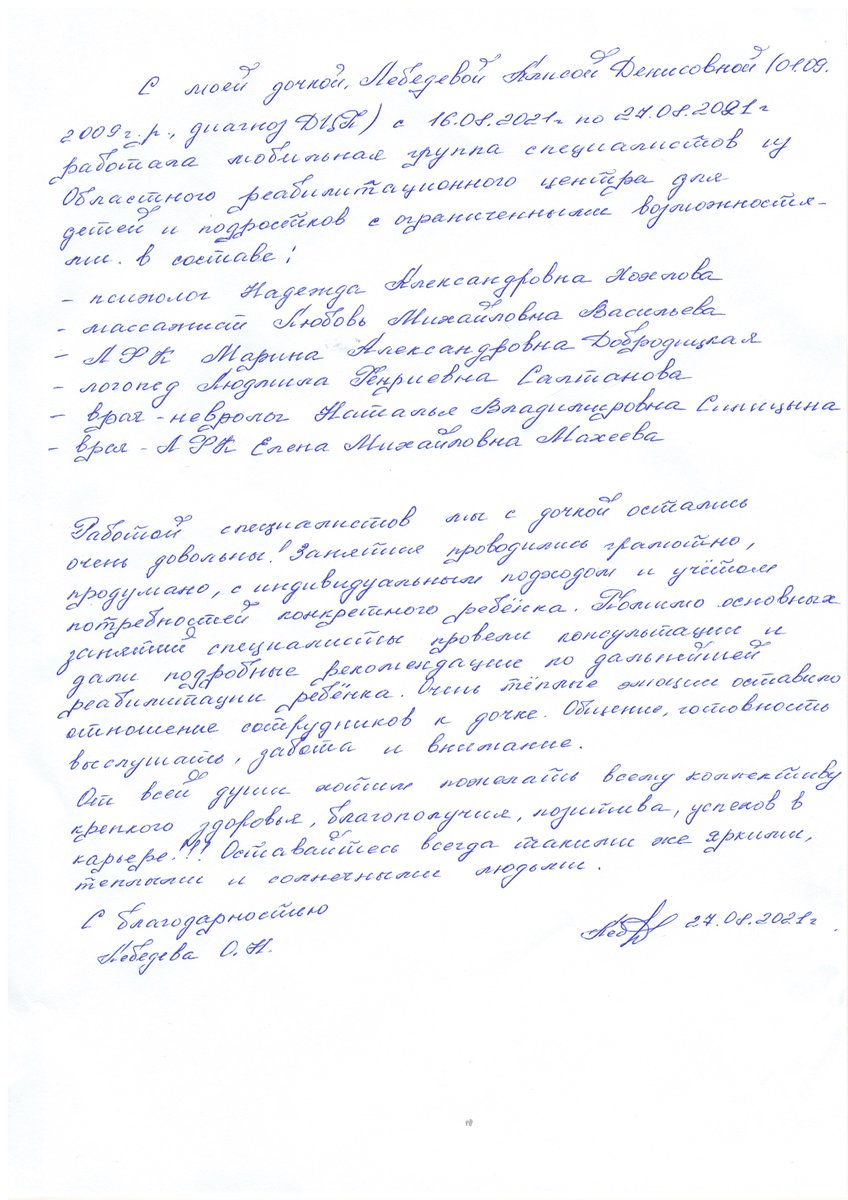 С моей дочкой, Лебедевой Алисой Денисовной (01.09.
2009 г.р., диагноз ДЦП) с 16.08.2021г по 27.08.2021г
работала мобильная группа специалистов из
Областного реабилитационного центра для
детей и подростков с ограниченными возможностя-
ми. в составе:
- психолог Надежда Александровна Хохлова
- массажист Любовь Михайловна Васильева
- ЛФК Марина Александровна Добродицкая
- логопед Людмила Генриевна Салтанова
- врач-невролог Наталья Владимировна Синицына
- врач-ЛФК Елена Михайловна Махеева
Работой специалистов мы с дочкой остались
очень довольны! Занятия проводились грамотно,
продумано, с индивидуальным подходом и учётом
потребностей конкретного ребёнка. Помимо основных
занятий специалисты провели консультации и
дали подробные рекомендации по дальнейшей
реабилитации ребёнка. Очень тёплые эмоции оставило
отношение сотрудников к дочке. Общение, готовность
выслушать, забота и внимание.
От всей души хотим пожелать всему коллективу
крепкого здоровья, благополучия, позитива, успехов в
карьере!!! Оставайтесь всегда такими же яркими,
теплыми и солнечными людьми.
С благодарностью
Лебедева О.Н. Леб 27.08.2021г.